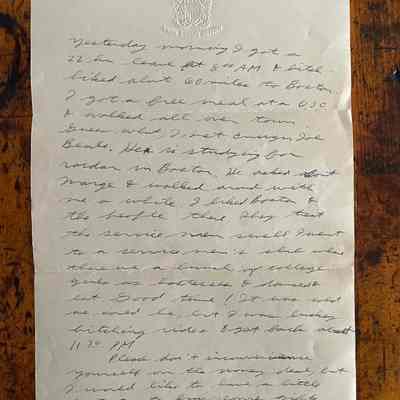 Yesterday morning I got a
22 hr leave at 8 00 AM & hitch
hiked about 60 miles to Boston.
I got a free meal at a USO
& walked all over town
Guess who I met Ensign Joe
Beals. He is studying for
radar in Boston. He asked about
Marge & walked around with
me a while I liked Boston &
the people there They treat
the service men swell I went
to a servicemen's club where
there was a bunch of college
girls as hostesses & danced
Good time! It was
we could be, but I was lucky
hitching rides & got back about
11 30 PM
Please don't inconvenience
yourself on the money deal, but
I would like to have a little